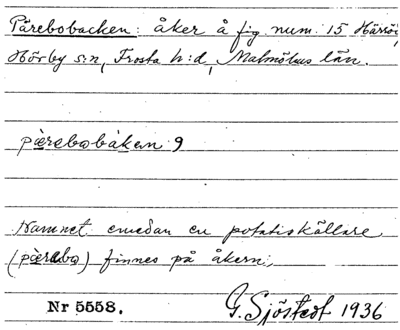 Pärebobacken: åker å fig. num. 15 Härröi,
Hörby s:n, Frosta h:d, Malmöhus län.
pærebobakem 9
Namnet emedan en potatiskällare
(pærebo) finnes på åkern.
Nr 5558. G. Sjöstedt 1936